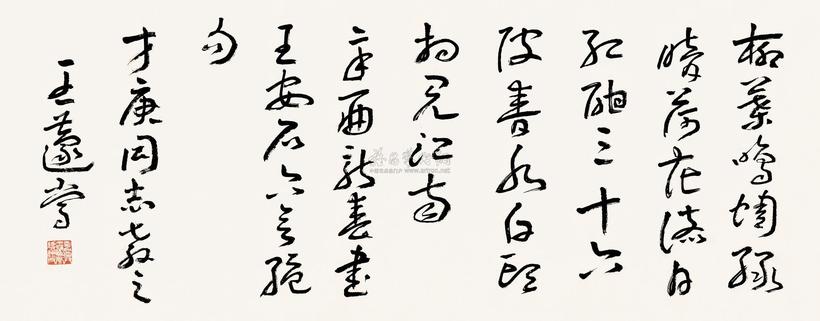 柳葉鳴蜩綠
暗荷花落日
紅酣三十六
陂春水白頭
想見江南
辛酉新春書
王安石六言絕
句
才庚同志教之
王蘧常